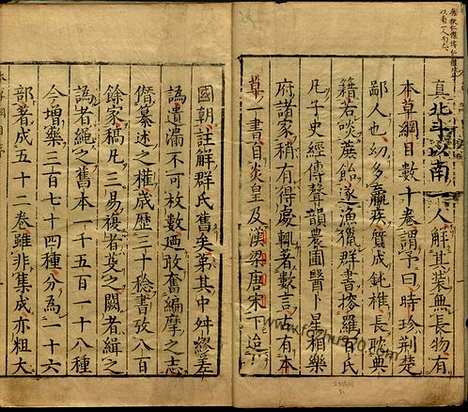 真北斗以南一人解其裝無長物有
本草綱目數十卷謂予曰時珍荆楚
鄙人也幼多羸疾質成鈍椎長耽典
籍若啖蔗飴遂漁獵群書搜羅百氏
凡子史經傳聲韻農圃醫卜星相樂
府諸家稍有得處輒著數言古有本
草一書自炎皇及漢梁唐宋下迨
國朝註解群氏舊矣第其中舛繆差
譌遺漏不可枚數迺敢奮編摩之志
僭纂述之權歲歷三十稔書攷八百
餘家稿凡三易複者芟之闕者緝之
譌者繩之舊本一千五百一十八種
今增藥三百七十四種分為一十六
部著成五十二卷雖非集成亦粗大